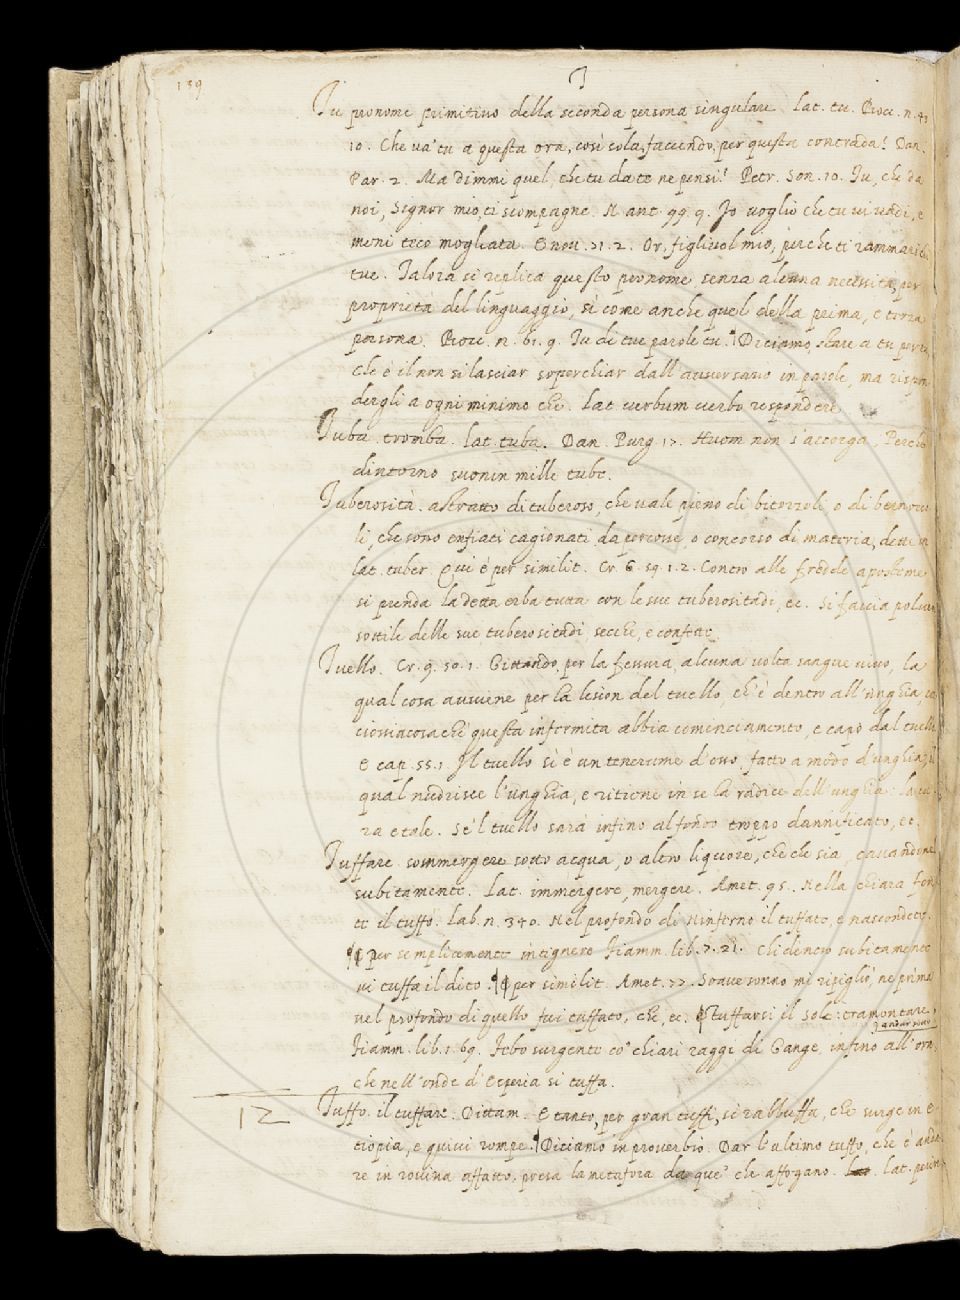 139
T
Tu pronome primitivo della seconda persona singulare. Lat. tu. Bocc. n. 43
10. Che va' tu a questa ora, così sola, facendo, per questa contrada! Dan.
Par. 2. Ma dimmi quel, che tu da te ne pensi! Petr. Son. 10. Tu, che da
noi, Signor mio, ti scompagne. N. ant. 99. 9. Io voglio che tu vi vadi, e
meni teco mogliata. E nou. 21. 2. Or, figliuol mio, perche ti rammarichi
tue. Talora si replica questo pronome senza alcuna necessita, per
proprietà del linguaggio, si come anche quel della prima, e terza
persona. Bocc. n. 61. 9. Tu di tue parole tu. Diciamo, stare a tu per tu
che è il non si lasciar soperchiar dall'auuersario in parole, ma rispon
dergli a ogni minimo che. Lat. verbum verbo respondere.
Tuba. tromba. lat. tuba. Dan. Purg. 17. Huom non s'accorga, Perche
dintorno suonin mille tube.
Tuberosità. astratto di tuberoso, che uale pieno di bitorzoli, o di bernoccu
li, che sono enfiati cagionati da percosse, o concorso di materia, dette in
lat. tuber. Qui é per similit. Cr. 6. 59. 1. 2. Contro alle fredde aposteme
si prenda la detta erba tutta con le sue tuberositadi, ec. Si faccia polvere
sottile delle sue tuberositadi secche, e confette.
Tuello. Cr. 9. 50. 1. Gittando, per la fessura, alcuna volta sangue vivo, la
qual cosa auuiene per la lesion del tuello, ch'è dentro all'unghia,
conciosiacosachè questa infermita abbia cominciamento, e capo dal tuello
E cap. 55. 1. Il tuello sì è un tenerume d'osso, fatto a modo d'unghia, il
qual nudrisce l'unghia, e ritiene in se la radice dell'unghia: la cu
ra è tale. Se'l tuello sarà infino al fondo troppo dannificato, ec.
Tuffare. sommergere sotto acqua, o altro liquore, che che sia, cavandone
subitamente. Lat. immergere, mergere. Amet. 95. Nella chiara fon
te il tuffò. Lab. n. 340. Nel profondo di Ninferno il tuffate, e nascondete.
¶ per semplicemente intignere Fiamm. lib. 7. 21. subitamente
vi tuffa il dito. ¶ per similit. Amet. 77. Soave sonno mi ripigliò, ne prima
nel profondo di quello fui tuffato, che, ec. ¶ tuffarsi il sole: tramontare,
andar sotto
Fiamm. lib. 1. 69. Febo surgente co' chiari raggi di Gange, infino all'ora,
che nell'onde d'Esperia si tuffa.
12
Tuffo. il tuffare. Dittam. E tanto, per gran tuffi, si rabbuffa, che surge in E
tiopia, e quivi rompe. Diciamo in proverbio. Dar l'ultimo tuffo, che è anda
re in rovina affatto, presa la metafora da que' che affogano. Lat.